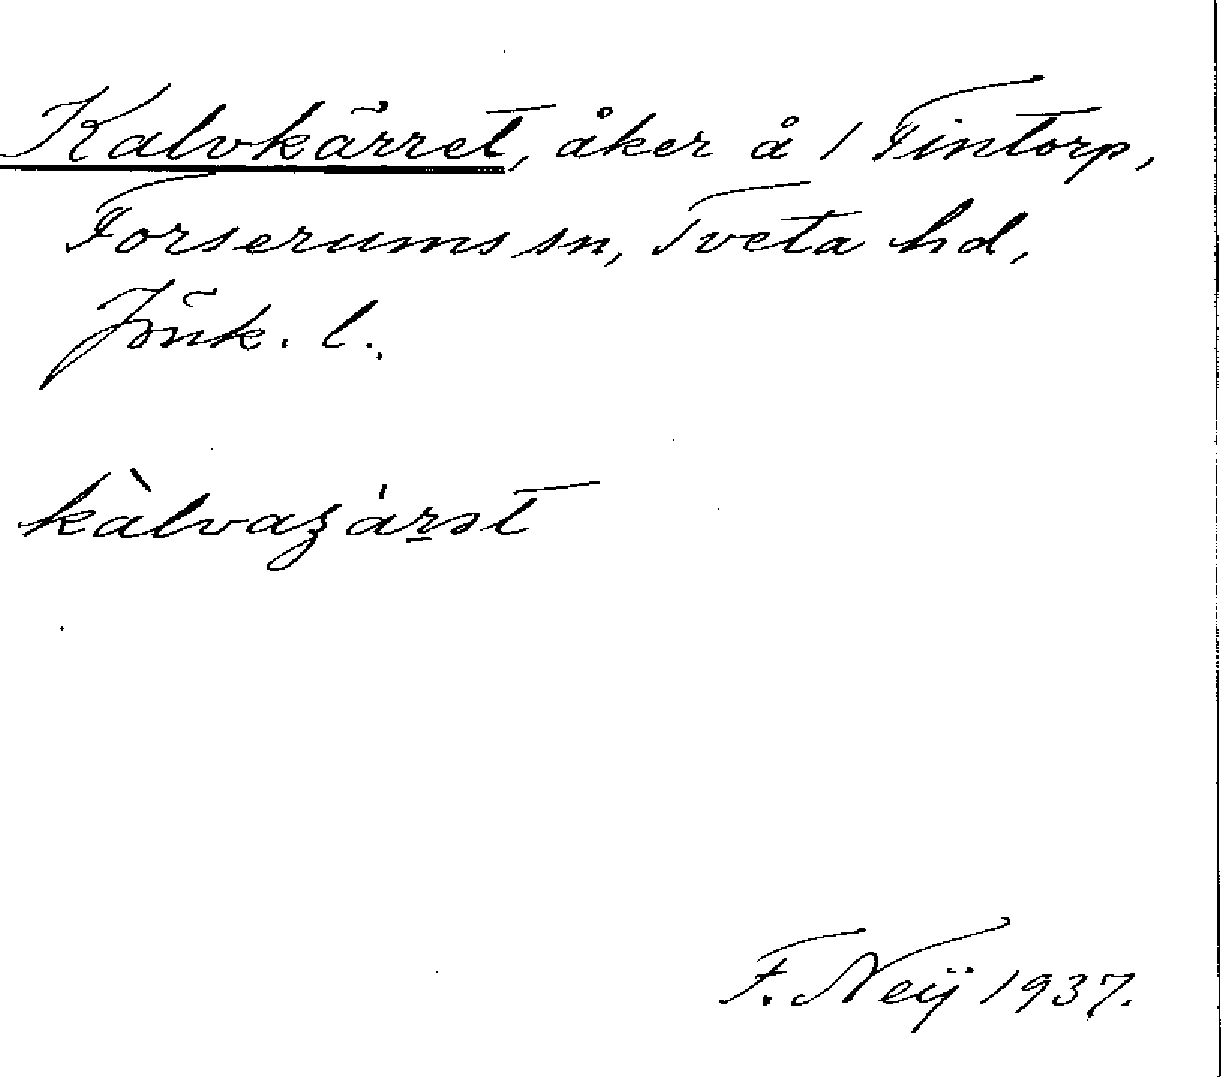 Kalvkärret, åker å 1 Fintorp,
Forserums sn, Tveta hd,
Jönk. l.
F. Neij 1937.